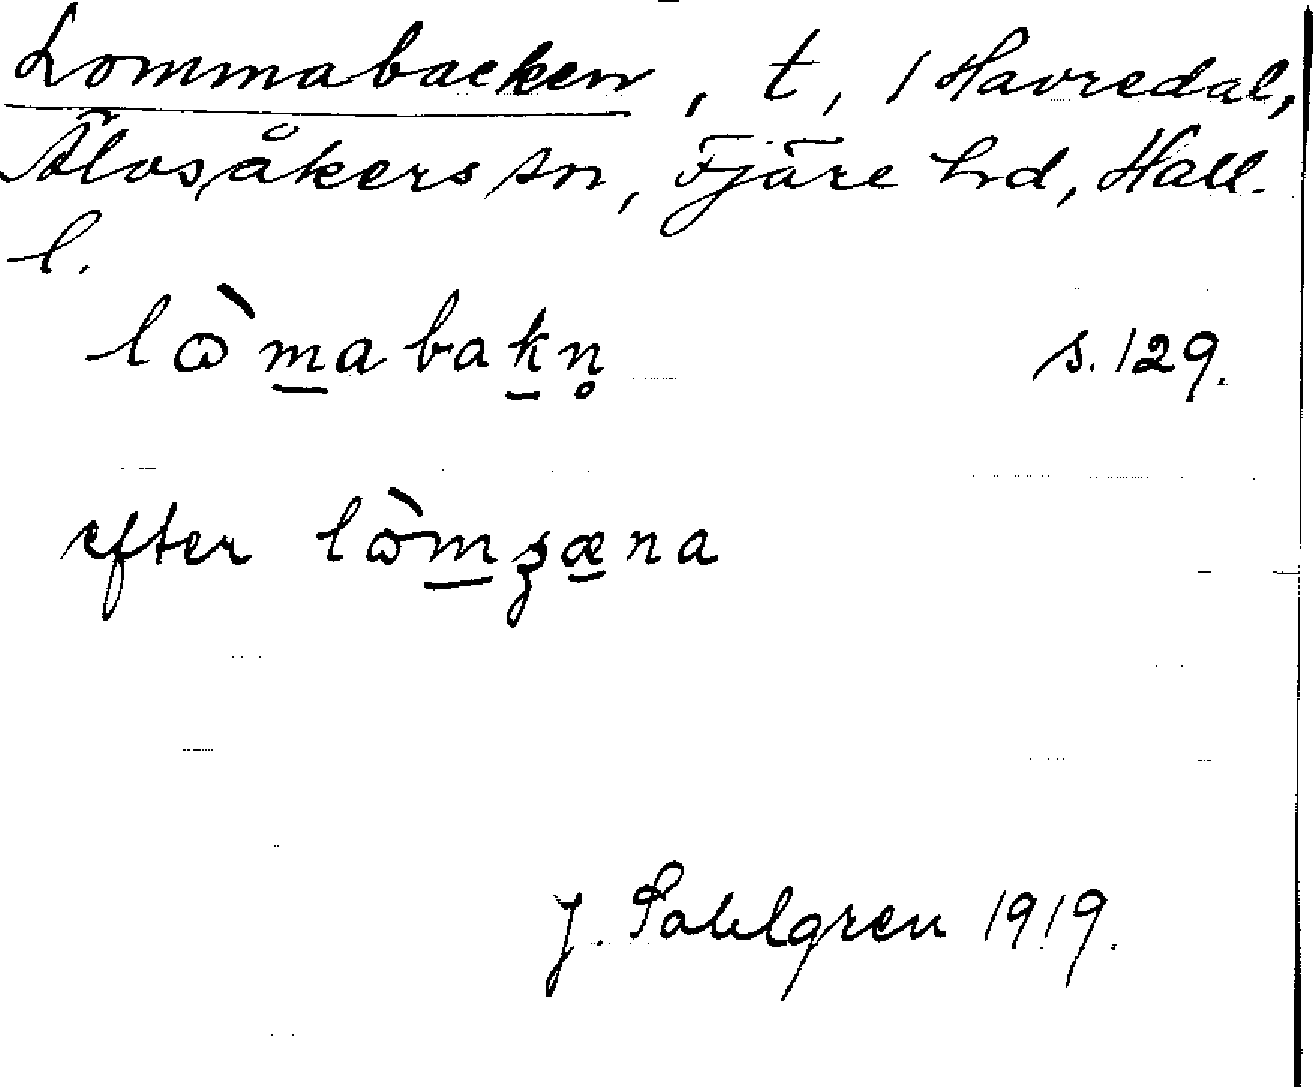 Lommabacken, t, i Havredal,
Älvsåkers sn, Fjäre hd, Hall.
l.
lὼm̲abak̲n̥ s. 129.
efter lὼm̲ʒæ̲na
J. Sahlgren 1919.